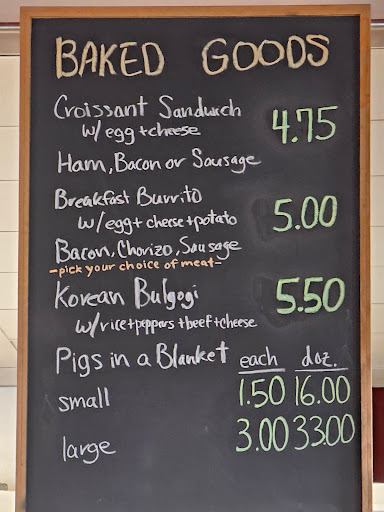 BAKED GOODS
Croissant Sandwich 4.75
w/egg+cheese
Ham, Bacon or Sausage
Breakfast Burrito 5.00
w/egg+cheese+potato
Bacon, Chorizo, Sausage
-pick your choice of meat-
Korean Bulgogi 5.50
w/rice+peppers+beef+cheese
Pigs in a Blanket each doz.
small 1.50 16.00
large 3.00 33.00